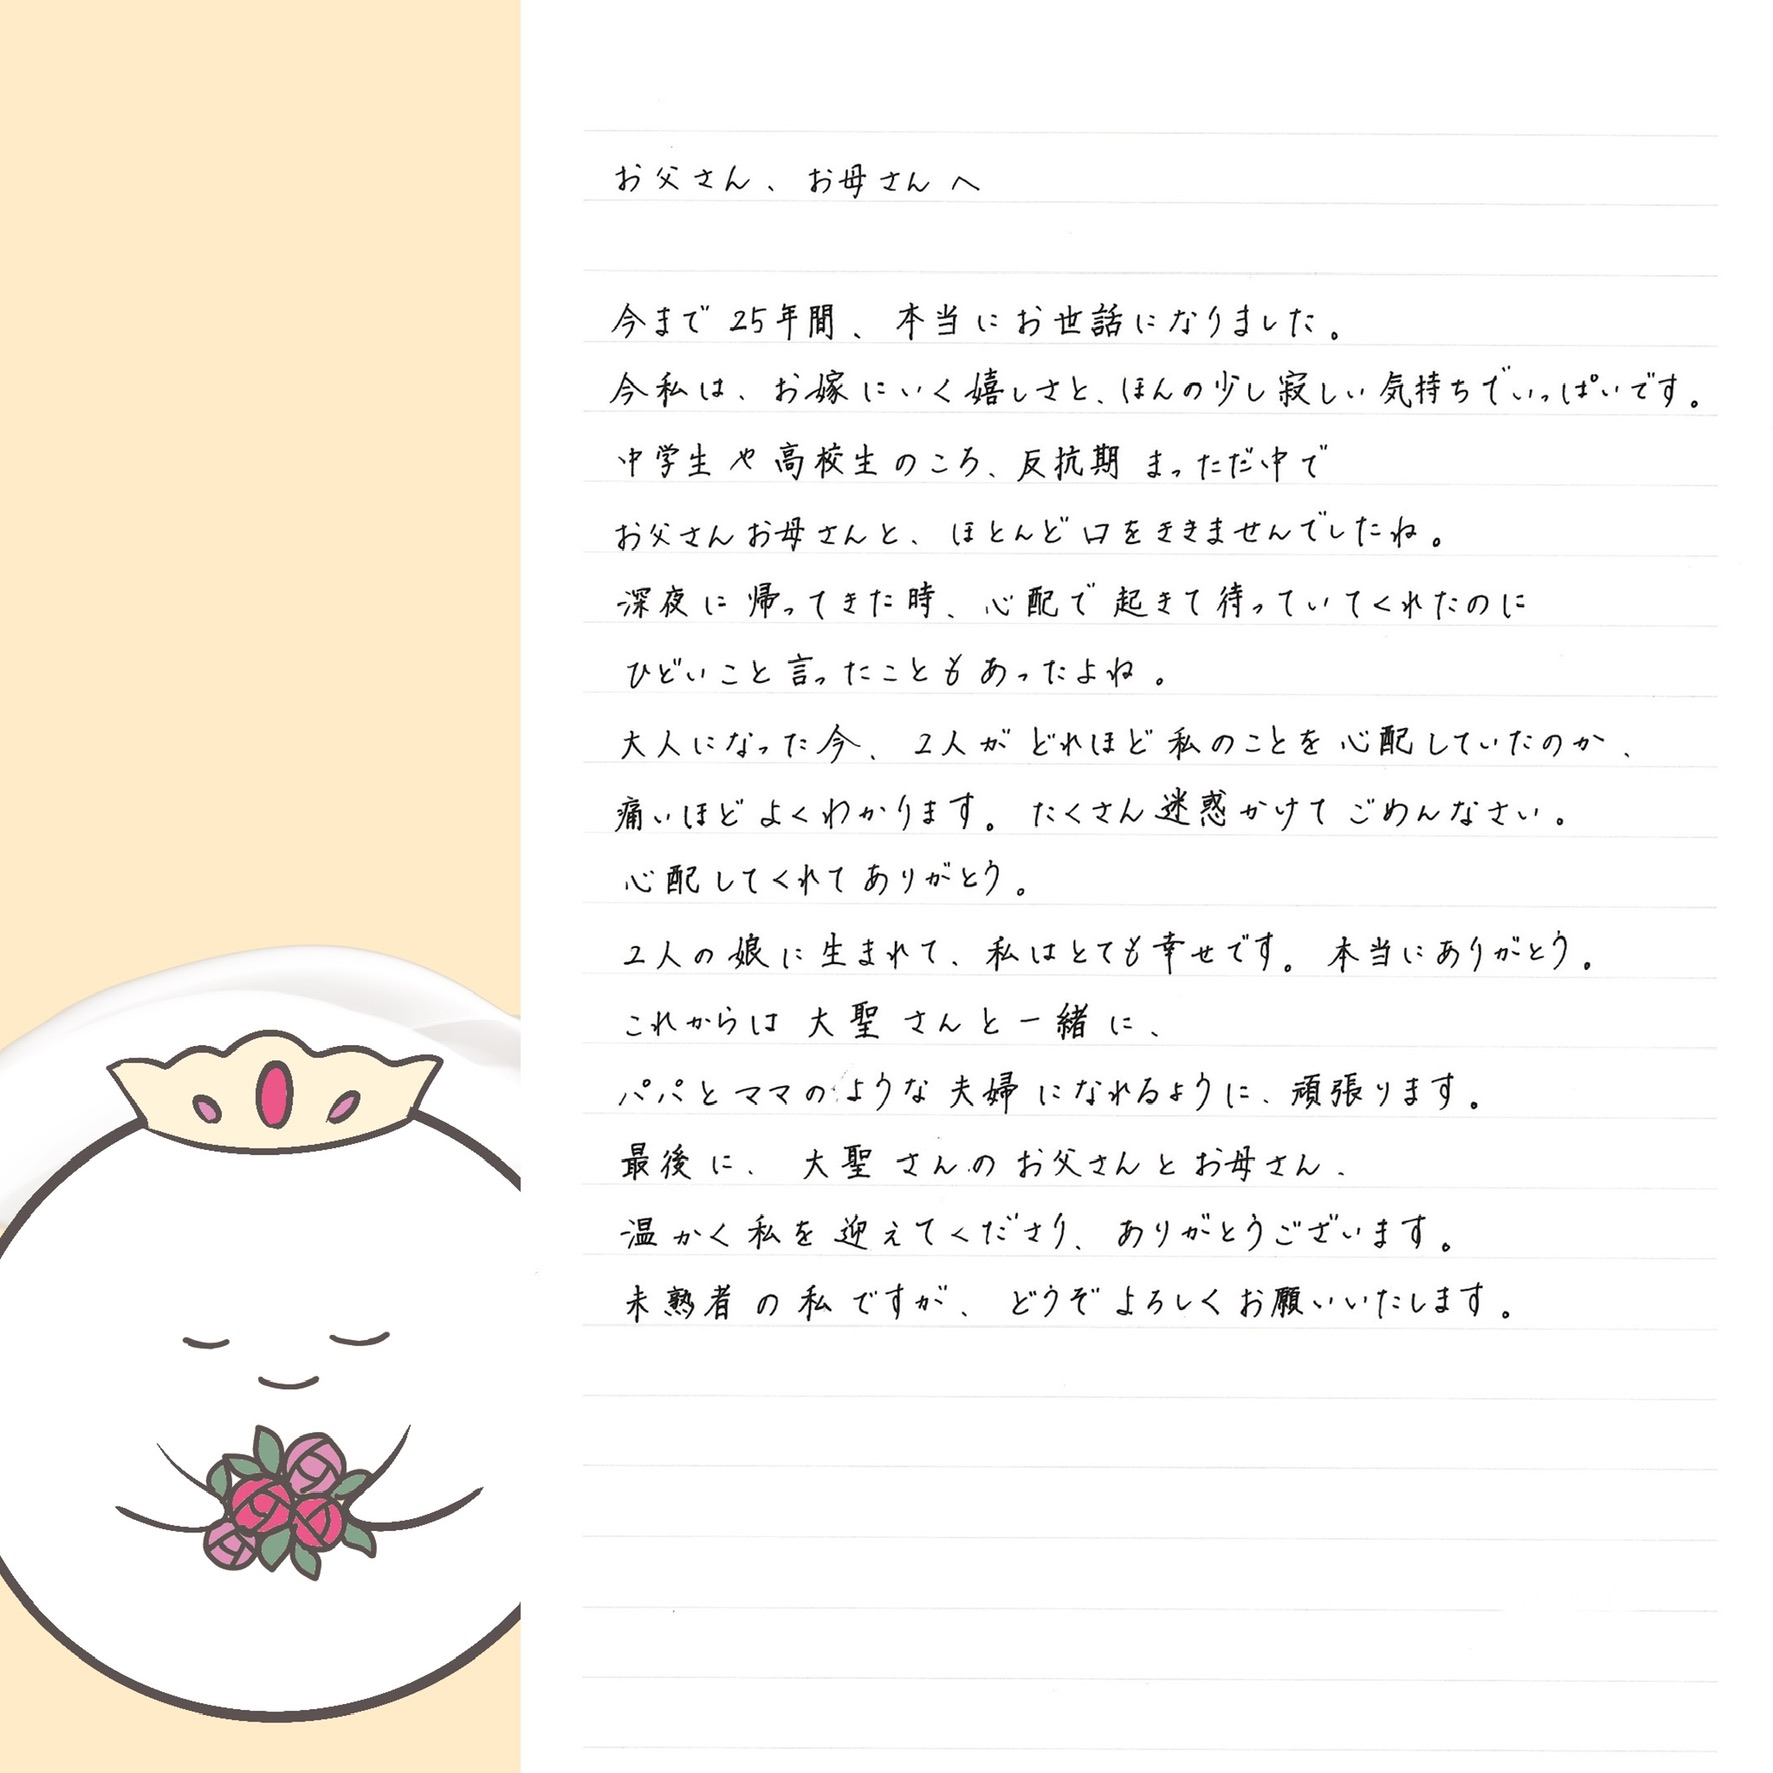 お父さん、お母さんへ
今まで25年間、本当にお世話になりました。
今私は、お嫁にいく嬉しさと、ほんの少し寂しい気持ちでいっぱいです。
中学生や高校生のころ、反抗期まっただ中で
お父さんお母さんと、ほとんど口をききませんでしたね。
深夜に帰ってきた時、心配で起きて待っていてくれたのに
ひどいこと言ったこともあったよね。
大人になった今、2人がどれほど私のことを心配していたのか、
痛いほどよくわかります。たくさん迷惑かけてごめんなさい。
心配してくれてありがとう。
2人の娘に生まれて、私はとても幸せです。本当にありがとう。
これからは大聖さんと一緒に、
パパとママのような夫婦になれるように、頑張ります。
最後に、大聖さんのお父さんとお母さん、
温かく私を迎えてくださり、ありがとうございます。
未熟者の私ですが、どうぞよろしくお願いいたします。